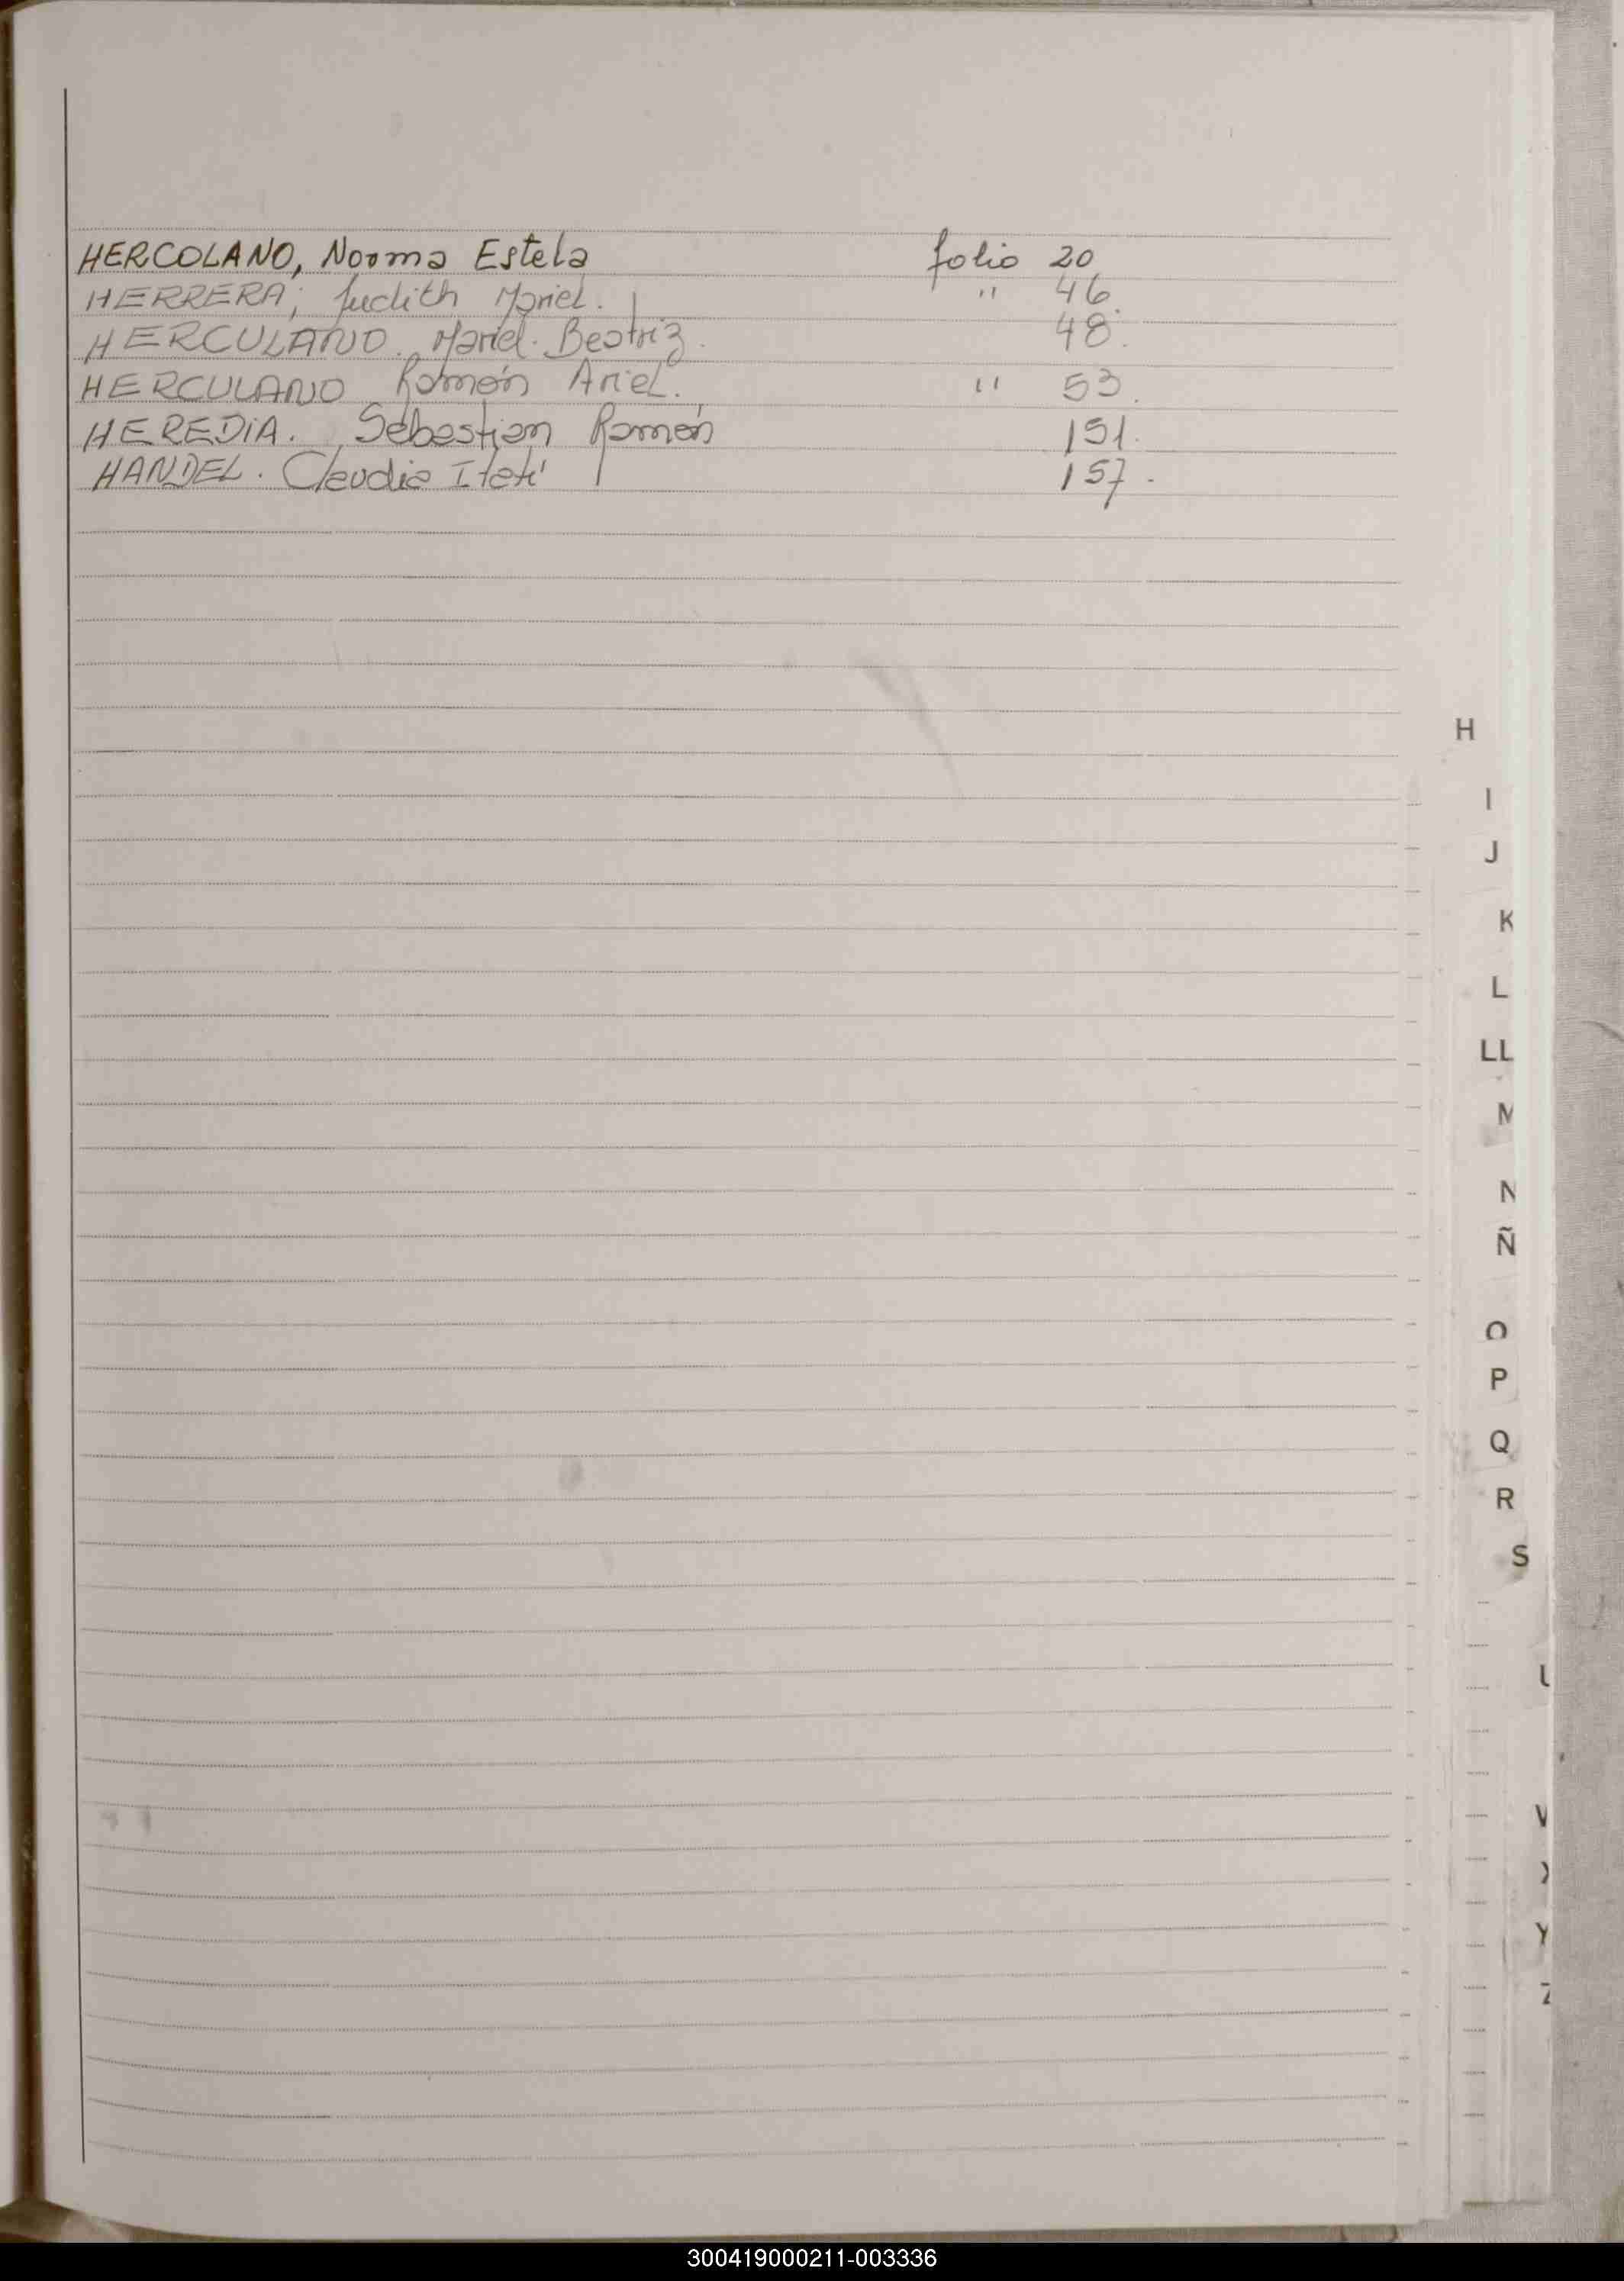 HERCOLANO, Norma Estela folio 20
HERRERA, Judith Mariel. " 46.
HERCULANO. Mariel. Beatriz. 48.
HERCULANO Ramón Ariel. " 53.
HEREDIA. Sebastian Ramón 151.
HANDEL. Claudia Itatí 157.
H
I
J
K
L
LL
M
N
Ñ
O
P
Q
R
S
U
V
X
Y
Z
300419000211-003336